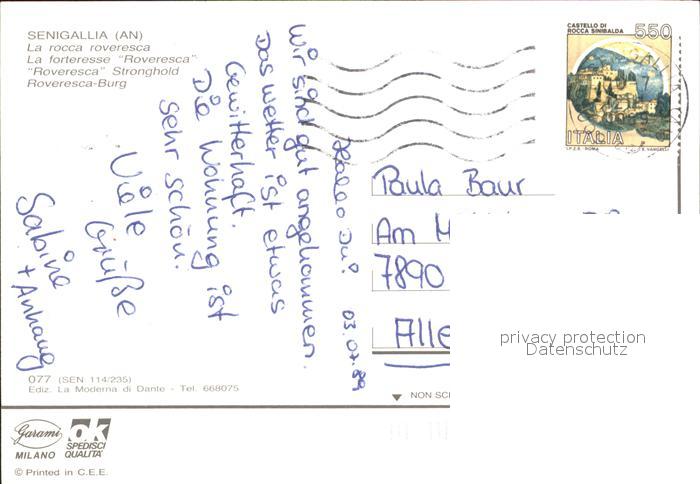 SENIGALLIA (AN)
La rocca roveresca
La forteresse "Roveresca"
"Roveresca" Stronghold
Roveresca-Burg
Hallo Du!
03.07.89
Wir sind gut angekommen.
Das Wetter ist etwas
Gewitterhaft.
Die Wohnung ist
sehr schön.
Viele
Grüße
Sabine
+ Anhang
CASTELLO DI
ROCCA SINIBALDA
550
ITALIA
I.P.Z.S. - ROMA
E. VANGELLI
Paula Baur
Am M
7890
Alle
privacy protection
Datenschutz
077 (SEN 114/235)
Ediz. La Moderna di Dante - Tel. 668075
NON SC
Garami
MILANO
OK
SPEDISCI
QUALITA'
© Printed in C.E.E.